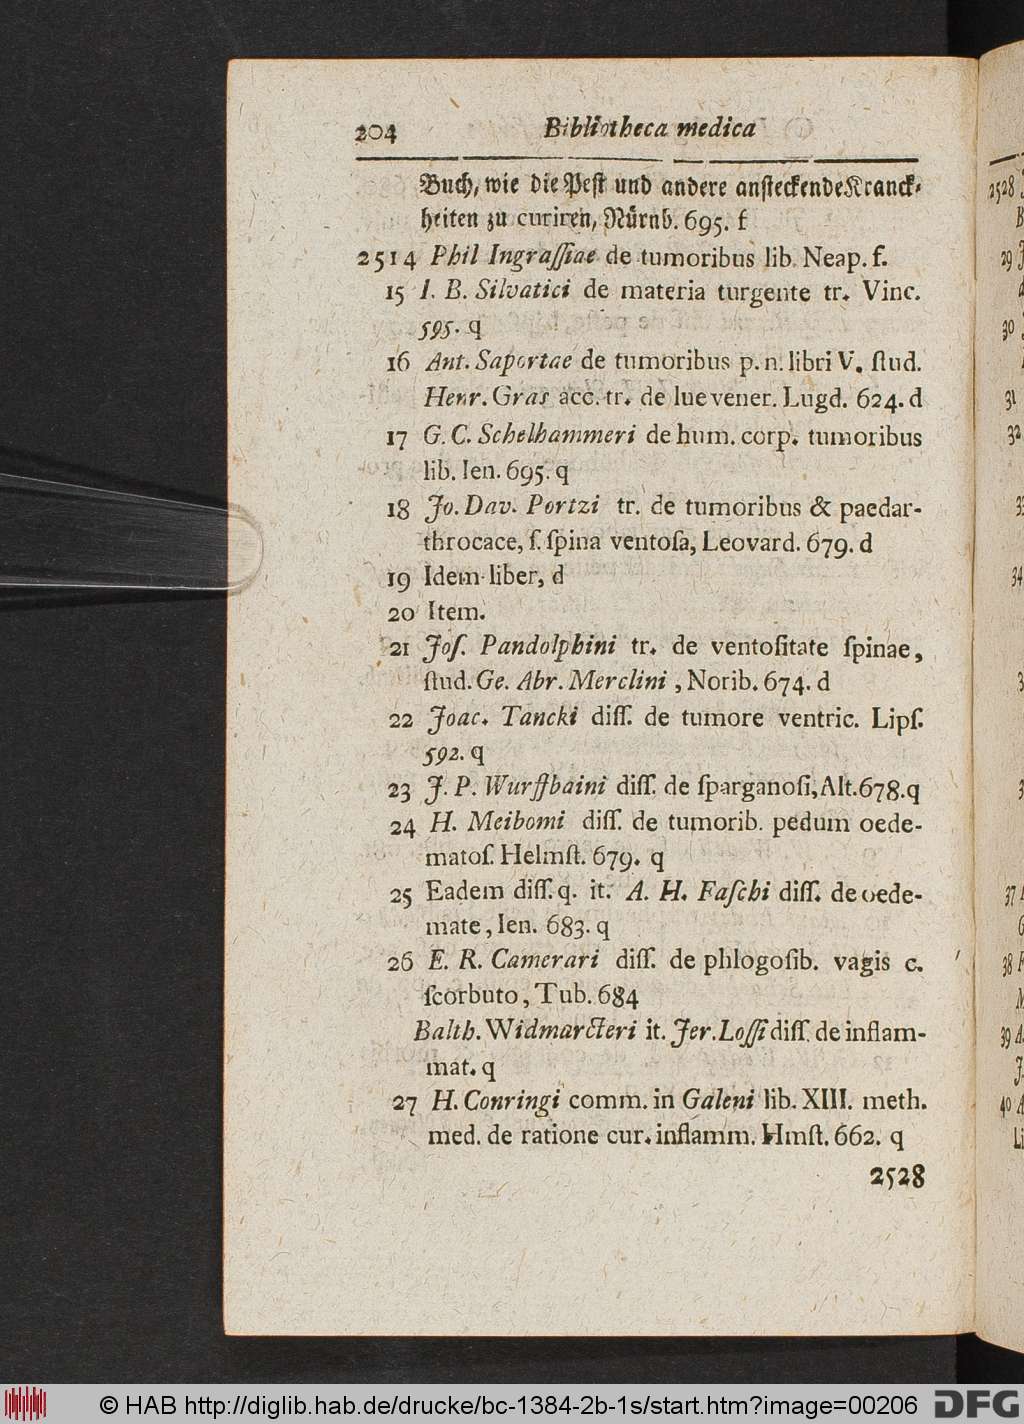 204 Bibliotheca medica
Buch, wie die Pest und andere ansteckende Kranck-
heiten zu curiren, Nürnb. 695. f
2514 Phil Ingraſſiae de tumoribus lib. Neap. f.
15 I. B. Silvatici de materia turgente tr. Vinc.
595. q
16 Ant. Saportae de tumoribus p. n. libri V. ſtud.
Henr. Gras acc. tr. de lue vener. Lugd. 624. d
17 G. C. Schelhammeri de hum. corp. tumoribus
lib. Ien. 695. q
18 Jo. Dav. Portzi tr. de tumoribus & paedar-
throcace, ſ. ſpina ventoſa, Leovard. 679. d
19 Idem liber, d
20 Item.
21 Joſ. Pandolphini tr. de ventoſitate ſpinae,
ſtud. Ge. Abr. Merclini, Norib. 674. d
22 Joac. Tancki diſſ. de tumore ventric. Lipſ.
592. q
23 J. P. Wurffbaini diſſ. de ſparganoſi, Alt. 678. q
24 H. Meibomi diſſ. de tumorib. pedum oede-
matoſ. Helmſt. 679. q
25 Eadem diſſ. q. it. A. H. Faſchi diſſ. de oede-
mate, Ien. 683. q
26 E. R. Camerari diſſ. de phlogoſib. vagis c.
ſcorbuto, Tub. 684
Balth. Widmarcteri it. Jer. Loſſi diſſ. de inflam-
mat. q
27 H. Conringi comm. in Galeni lib. XIII. meth.
med. de ratione cur. inflamm. Hmſt. 662. q
2528
2528
29
30
31
32
34
37
38
39
40
© HAB http://diglib.hab.de/drucke/bc-1384-2b-1s/start.htm?image=00206 DFG